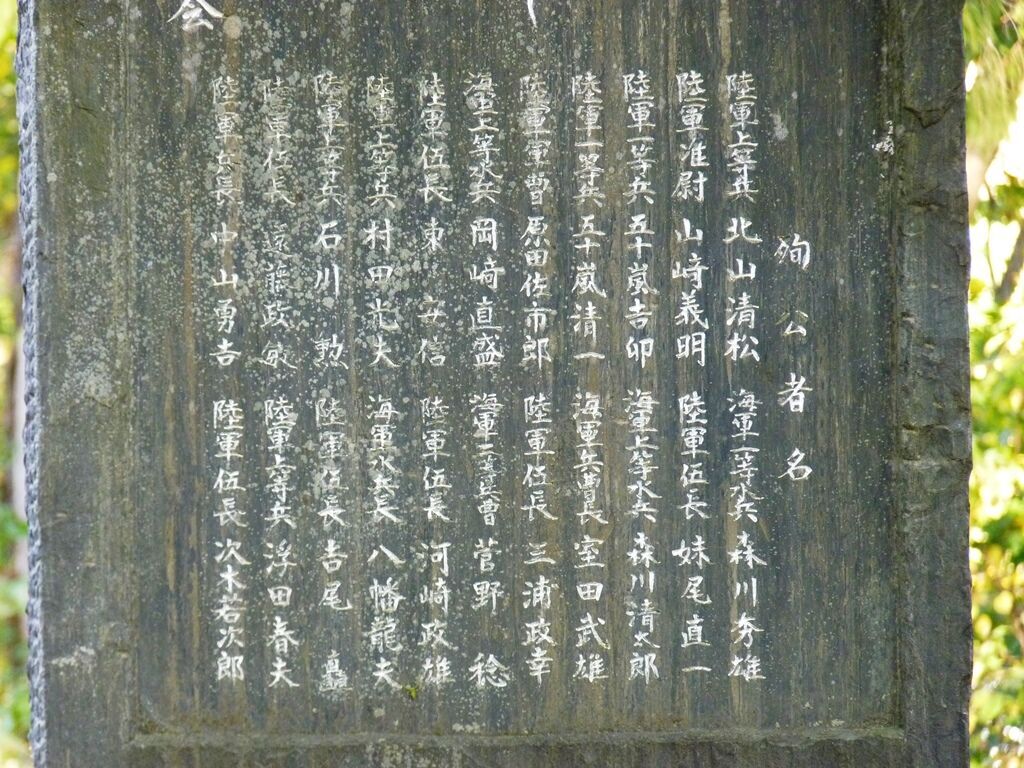 殉公者名
陸軍上等兵 北山清松 海軍一等水兵 森川秀雄
陸軍准尉 山崎義明 陸軍伍長 妹尾直一
陸軍一等兵 五十嵐吉卯 海軍上等水兵 森川清太郎
陸軍一等兵 五十嵐清一 海軍兵曹長 室田武雄
陸軍軍曹 原田佐市郎 陸軍伍長 三浦政幸
海軍上等水兵 岡崎直盛 海軍二等兵曹 菅野 稔
陸軍伍長 東 安信 陸軍伍長 河崎政雄
陸軍上等兵 村田光夫 海軍水兵長 八幡龍夫
陸軍上等兵 石川 勲 陸軍伍長 吉尾
陸軍伍長 遠藤政敏 陸軍上等兵 浮田春夫
陸軍兵長 中山勇吉 陸軍伍長 次木若次郎
会